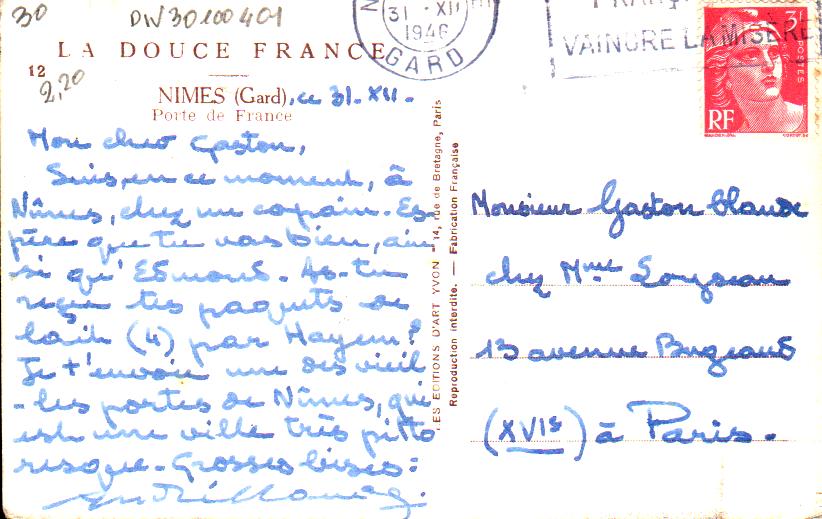 30
DIV30100401
31 -XII
1946
GARD
VAINCRE LA MISÈRE
3F
POSTES
RF
LA DOUCE FRANCE
12
2,20
NIMES (Gard), ce 31-XII-
Porte de France
Mon cher Gaston,
Suis, en ce moment, à
Nîmes, chez un copain. Es-
père que tu vas bien, ain
si qu'Edmond. As-tu
reçu tes paquets de
lait (4) par Hayem?
Je t'envoie une des vieil
-les portes de Nîmes, qui
est une ville très pitto
resque. Grosses bises:
LES EDITIONS D'ART YVON - 14, rue de Bretagne, Paris
Reproduction interdite. — Fabrication Française
Monsieur Gaston
chez Mme
13 avenue Bugeaud
(XVIe) à Paris.